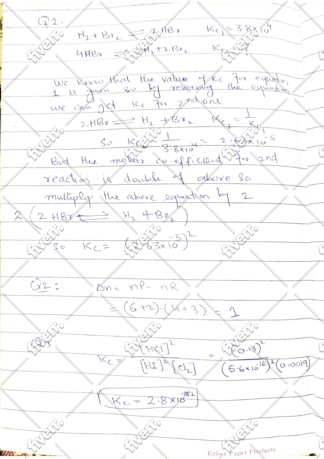 Q2.
H₂ + Br₂ ⇌ 2HBr Kc₁ = 3.8x10⁴
4HBr ⇌ H₂ + 2Br₂ Kc
We know that the value of Kc for equation
1 is given so by reversing the equation
we can get Kc for 2nd one
2HBr ⇌ H₂ + Br₂ Kc₂ = 1/Kc
So Kc₂ = 1/3.8x10⁴ = 2.63x10⁻⁵
But the molar co-efficient for 2nd
reaction is double of above so
multiply the above equation by 2
2 (2 HBr ⇌ H₂ + Br₂)
So Kc = (2.63x10⁻⁵)²
Q2: Δn = nP - nR
= (6+2) - (4+3) = 1
Kc = [HCl]²/[HI]²[Cl₂] = (0.13)²/(5.6x10⁻¹⁶)²(0.0019)
Kc = 2.8x10
fiverr.
Relign Paper Products